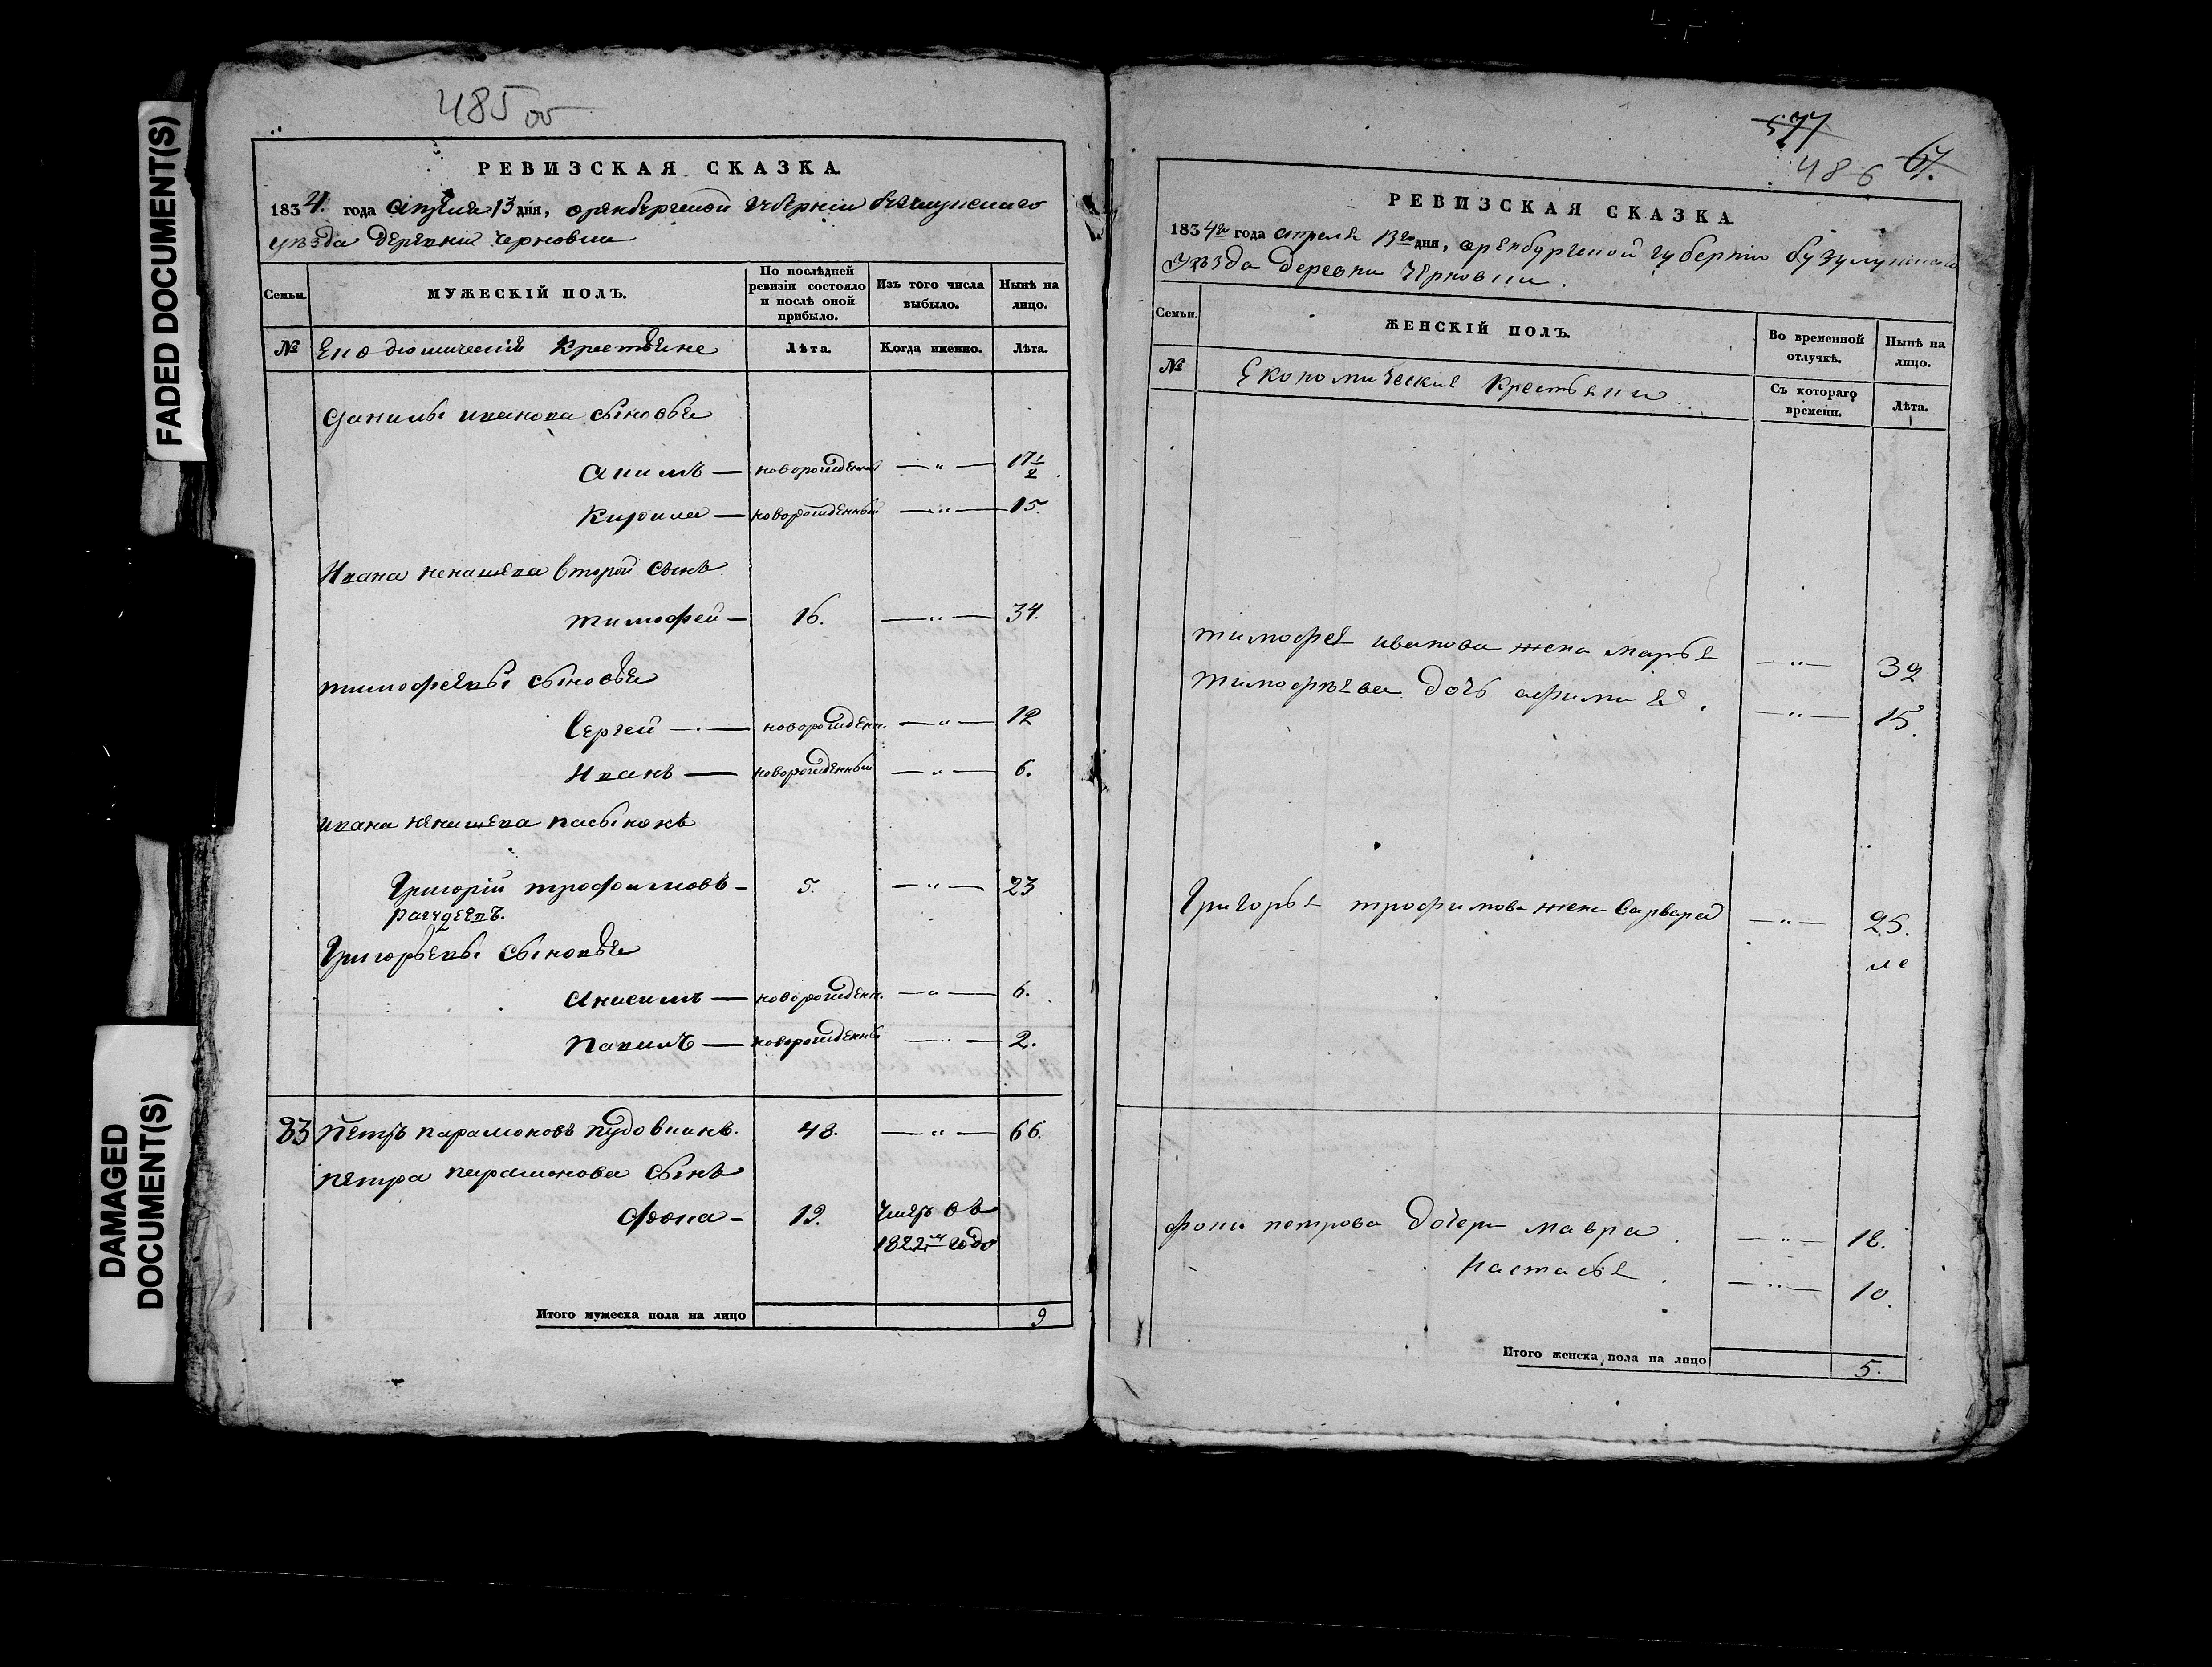 FADED DOCUMENT(S)
DAMAGED
DOCUMENT(S)
485 об
РЕВИЗСКАЯ СКАЗКА.
1834. года апреля 13 дня, оренбургской губернии бузулукскаго
уѣзда деревни Черновки
Семьи.
МУЖЕСКІЙ ПОЛЪ.
По послѣдней ревизіи состояло и послѣ оной прибыло.
Изъ того числа выбыло.
Нынѣ на лицо.
№ Економическия Крестьяне
Лѣта.
Когда именно.
Лѣта.
Данилы иванова сыновья
Акимъ — новорожденный — " — 17 1/2
Кирила — новорожденный — " — 15.
Ивана ненашева второй сынъ
тимофей — 16. — " — 34.
тимофеевы сыновья
Сергей — новорожденн. — " — 12
Иванъ — новорожденный — " — 6.
ивана ненашева пасынокъ
Григорій трофимовъ — 5. — " — 23
Григорьевы сыновья
Анисимъ — новорожденн. — " — 6.
Павилъ — новорожденны — " — 2.
33 Петръ парамоновъ пудовкинъ. 48. — " — 66.
петра парамонова сынъ
Фока — 12. умеръ въ
1822м годо
Итого мужеска пола на лицо 9
577
486 67.
РЕВИЗСКАЯ СКАЗКА.
1834го года апреля 13го дня, оренбургской губерніи бузулукскаго
уѣзда деревни Черновки.
Семьи.
ЖЕНСКІЙ ПОЛЪ.
Во временной отлучкѣ.
Нынѣ на лицо.
№ Економические Крестьяни
Съ котораго времени.
Лѣта.
тимофея иванова жена марья — " — 32
тимофѣева дочь афимия. — " — 15.
Григорья трофимова жена варвара — " — 25.
фоки петрова дочери мавра. — " — 18.
настасья. — " — 10.
Итого женска пола на лицо 5.